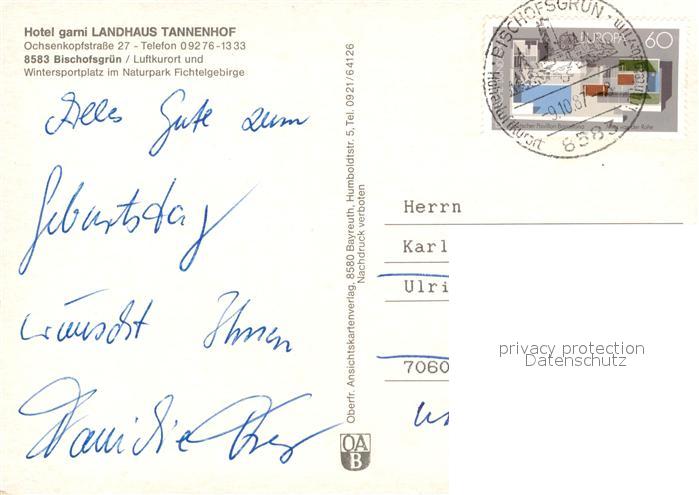 Hotel garni LANDHAUS TANNENHOF
Ochsenkopfstraße 27 - Telefon 09276-1333
8583 Bischofsgrün / Luftkurort und
Wintersportplatz im Naturpark Fichtelgebirge
Alles Gute zum
Geburtstag
wünscht Ihnen
Familie
Oberfr. Ansichtskartenverlag, 8580 Bayreuth, Humboldtstr. 5, Tel. 0921/64126
Nachdruck verboten
OA
B
BISCHOFSGRÜN
-9.10.87
8583
EUROPA 60
Herrn
Karl
Ulri
7060
privacy protection
Datenschutz